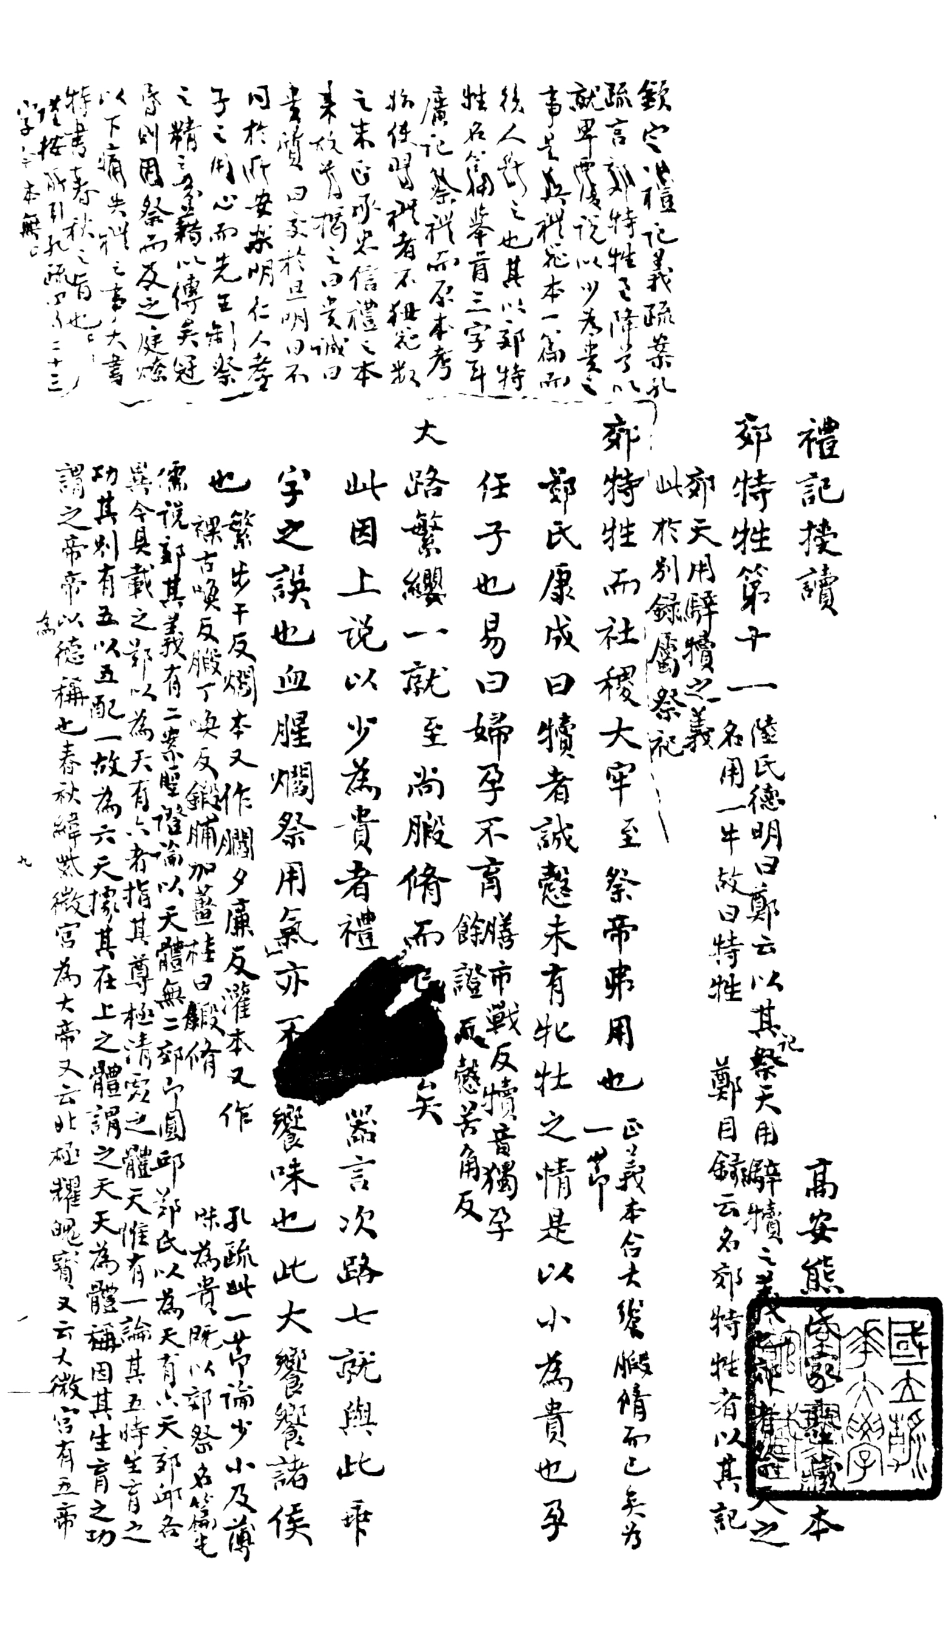 欽定禮記義疏案孔
疏言郊特牲之降等以
就卑覆說以少為貴之
事是與禮器本一篇而
後人斷之也其以郊特
牲名篇舉首三字耳
廣記祭禮而原本考
始使習禮者不狃於數
之末正承忠信禮之本
來故首揭之曰貴誠曰
貴質曰交於旦明曰不
同於所安求明仁人孝
子之用心而先王制祭
之精意藉以傳矣冠
昏則因祭而及之庭燎
以下痛失禮之事大書
特書春秋之旨也
謹按所引孔疏二十三
字本無
禮記摘讀
高安熊 家藏本
郊特牲第十一
陸氏德明曰鄭云以其記祭天用騂犢之義也郊者祭天之
名用一牛故曰特牲 鄭目錄云名郊特牲者以其記
郊天用騂犢之義
此於別錄屬祭祀
郊特牲而社稷大牢至祭帝弗用也
正義本合大饗腶脩而已矣為
一節
鄭氏康成曰犢者誠愨未有牝牡之情是以小為貴也孕
任子也易曰婦孕不育
膳市戰反犢音獨孕
餘證反愨苦角反
大路繁纓一就至尚腶脩而已矣
此因上說以少為貴者禮器言次路七就與此乖
字之誤也血腥爓祭用氣亦不饗味也此大饗饗諸侯
也
繁步干反爓本又作膶夕廉反灌本又作
祼古喚反腶丁喚反鍛脯加薑桂曰鍛脩
孔疏此一節論少小及薄
味為貴既以郊祭名篇先
儒說郊其義有二案聖證論以天體無二郊即圓邱鄭氏以為天有六天郊邱各
異今具載之鄭以為天有六者指其尊極清虛之體天惟有一論其五時生育之
功其別有五以五配一故為六天據其在上之體謂之天天為體稱因其生育之功
謂之帝帝以德稱也春秋緯紫微宮為大帝又云北極耀魄寶又云大微宮有五帝
為
九
國立
大學